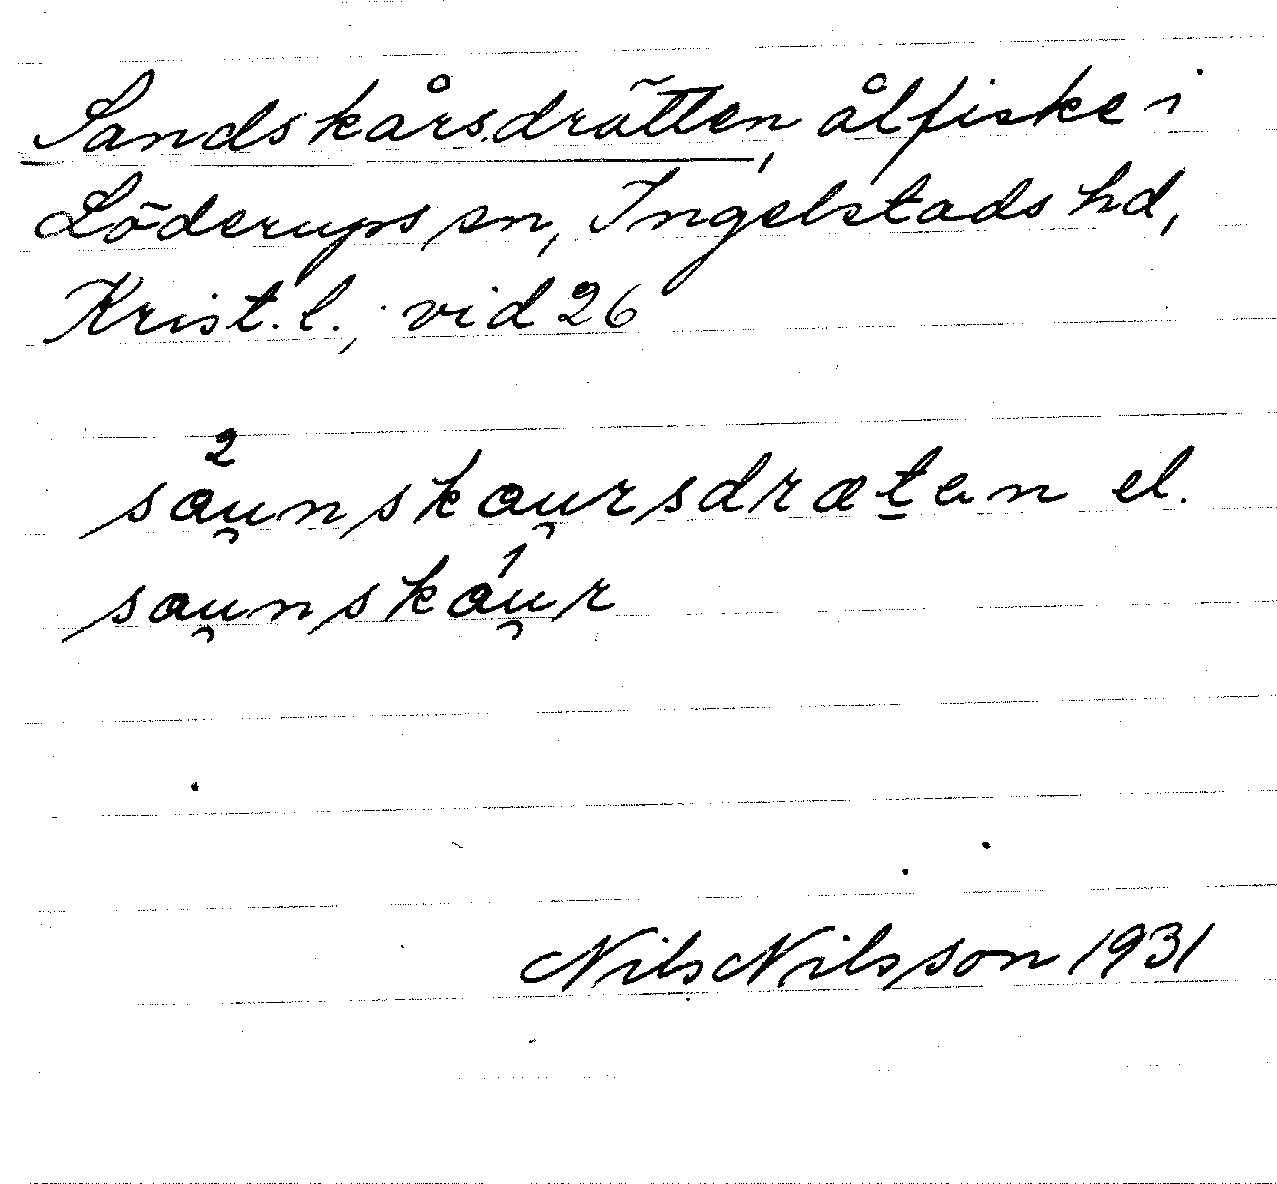 Sandskårsdrätten, ålfiske i
Löderups sn, Ingelstads hd,
Krist. l., vid 26
sau̯²nskau̯rsdræt̲ən el.
sau̯nskáu̯¹r
Nils Nilsson 1931